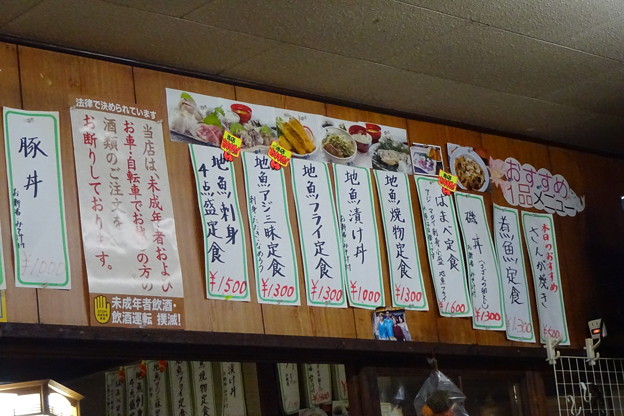 豚丼
お新香 みそ汁付
¥1000
法律で決められています
当店は、未成年者および
お車・自転車でお越しの方の
酒類のご注文を
お断りしております。
未成年者飲酒・
飲酒運転 撲滅!
地魚刺身
4点盛定食
¥1500
地魚アジ三昧定食
¥1300
地魚フライ定食
¥1300
地魚漬け丼
お新香 みそ汁付
¥1000
地魚焼物定食
¥1300
はまべ定食
¥1600
磯丼
¥1300
煮魚定食
¥1300
本日のおすすめ
さんが焼き
¥500
おすすめ
1品メニュー